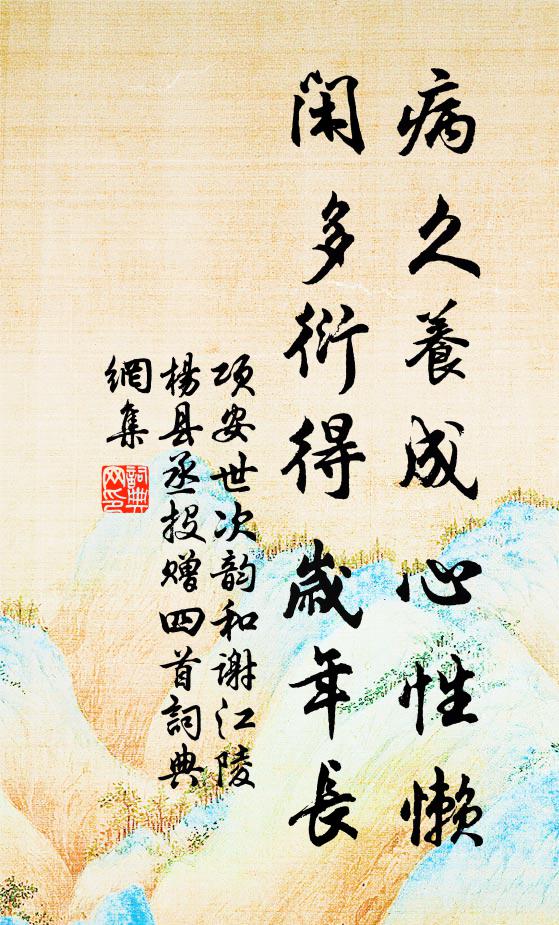 病久養成心性懒
閑多衍得歲年長
项安世次韵和谢江陵
楊县丞投赠四首詞典
網集
詞典网印